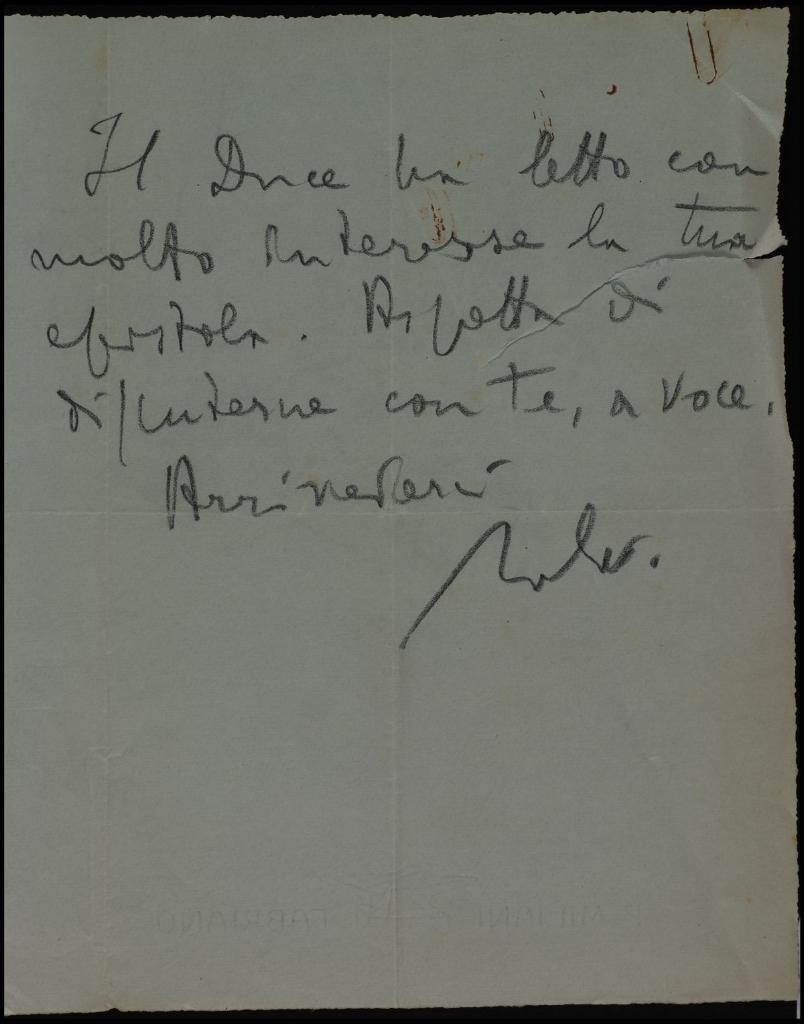 Il Duce ha letto con
molto interesse la tua
epistola. Aspetta di
discuterne con te, a voce.
Arrivederci
P. MILIANI FABRIANO